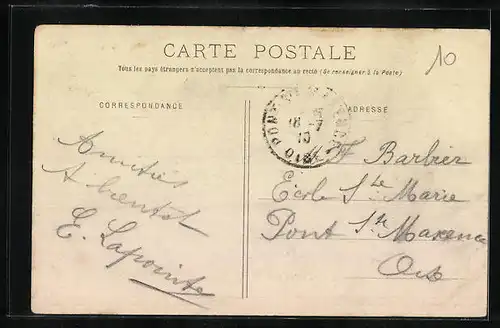 CARTE POSTALE
Tous les pays étrangers n'acceptent pas la correspondance au recto (Se renseigner à la Poste)
10
CORRESPONDANCE
ADRESSE
Amitiés
A bientot
E. Lapointe
F Barbier
Ecole Ste Marie
Pont Ste Maxence
Oise